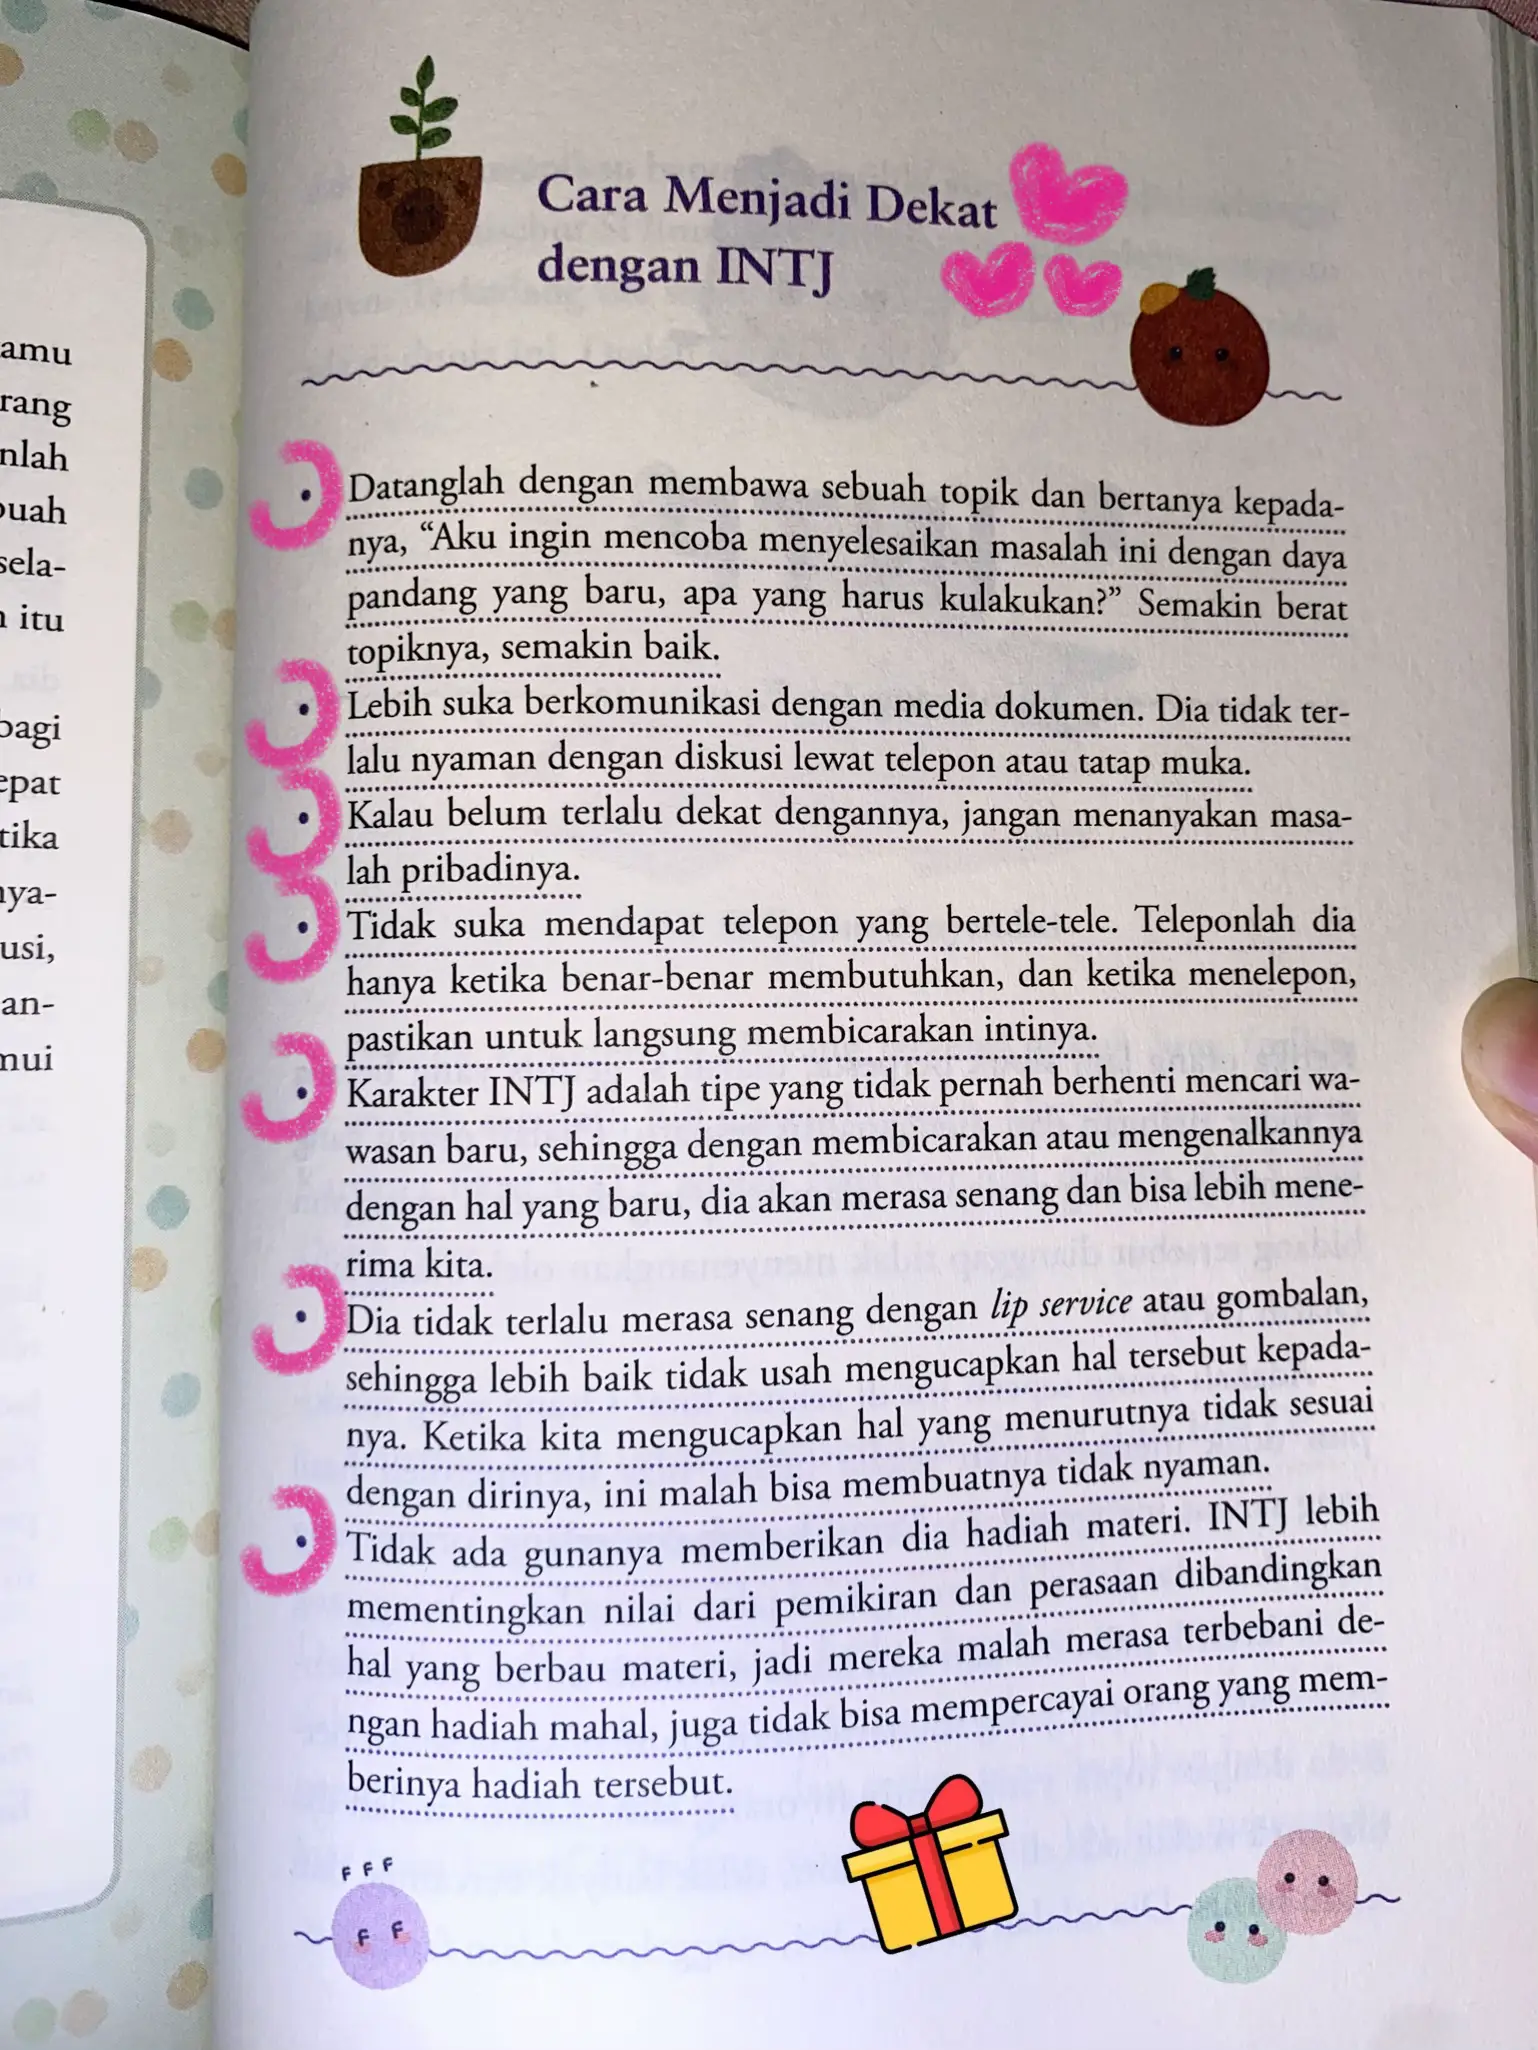 amu
rang
nlah
buah
sela-
n itu
bagi
epat
tika
nya-
usi,
an-
mui
Cara Menjadi Dekat
dengan INTJ
• Datanglah dengan membawa sebuah topik dan bertanya kepada-
nya, “Aku ingin mencoba menyelesaikan masalah ini dengan daya
pandang yang baru, apa yang harus kulakukan?” Semakin berat
topiknya, semakin baik.
• Lebih suka berkomunikasi dengan media dokumen. Dia tidak ter-
lalu nyaman dengan diskusi lewat telepon atau tatap muka.
• Kalau belum terlalu dekat dengannya, jangan menanyakan masa-
lah pribadinya.
• Tidak suka mendapat telepon yang bertele-tele. Teleponlah dia
hanya ketika benar-benar membutuhkan, dan ketika menelepon,
pastikan untuk langsung membicarakan intinya.
• Karakter INTJ adalah tipe yang tidak pernah berhenti mencari wa-
wasan baru, sehingga dengan membicarakan atau mengenalkannya
dengan hal yang baru, dia akan merasa senang dan bisa lebih mene-
rima kita.
• Dia tidak terlalu merasa senang dengan lip service atau gombalan,
sehingga lebih baik tidak usah mengucapkan hal tersebut kepada-
nya. Ketika kita mengucapkan hal yang menurutnya tidak sesuai
dengan dirinya, ini malah bisa membuatnya tidak nyaman.
• Tidak ada gunanya memberikan dia hadiah materi. INTJ lebih
mementingkan nilai dari pemikiran dan perasaan dibandingkan
hal yang berbau materi, jadi mereka malah merasa terbebani de-
ngan hadiah mahal, juga tidak bisa mempercayai orang yang mem-
berinya hadiah tersebut.
F F F
F F